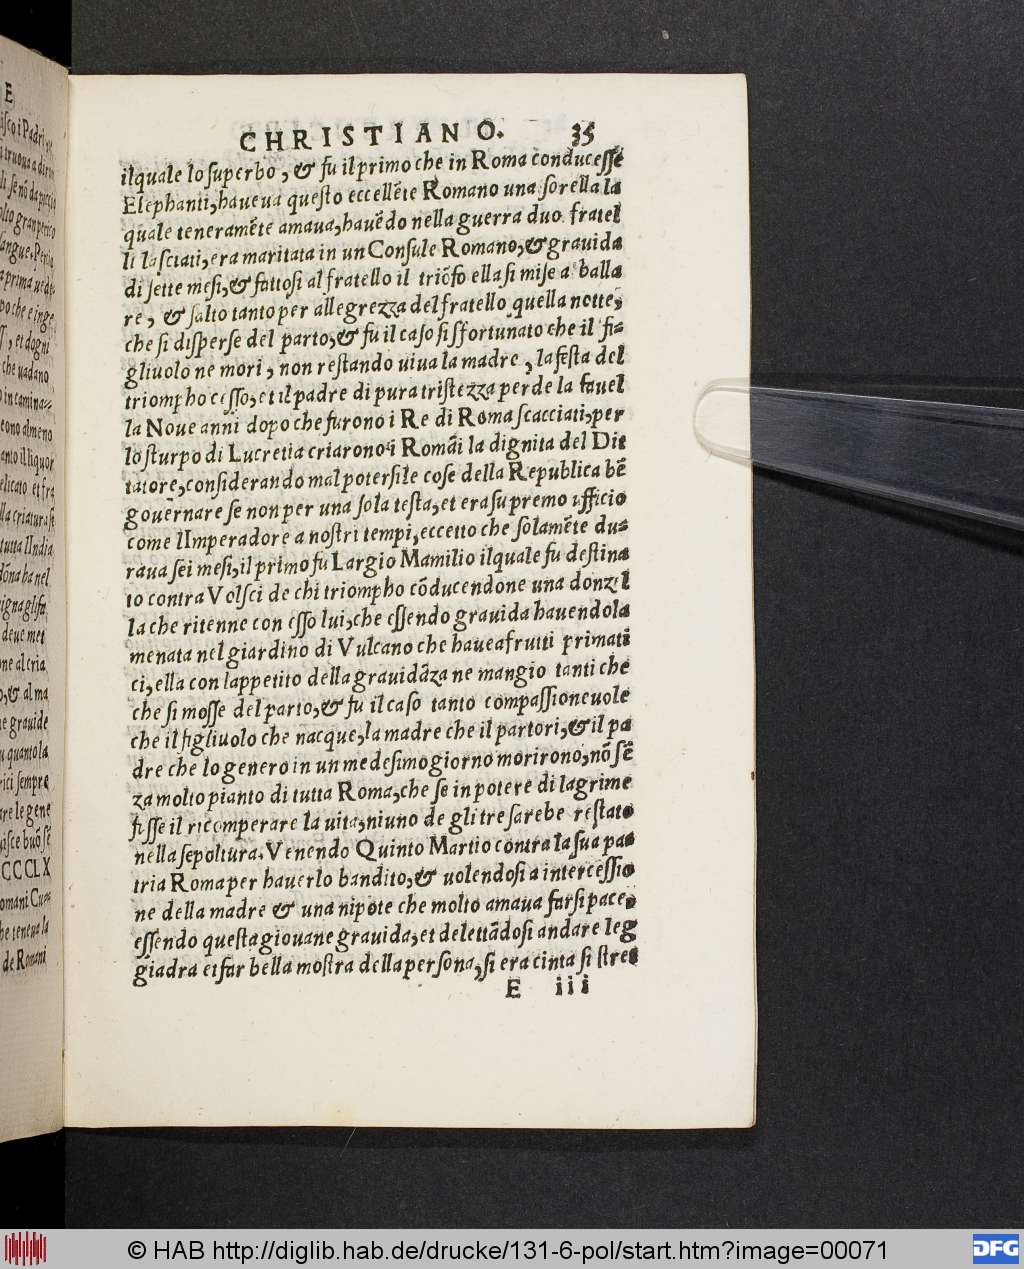 CHRISTIANO. 35
ilquale lo superbo, & fu il primo che in Roma conducesse
Elephanti, haueua questo eccellẽte Romano una sorella la
quale teneramẽte amaua, hauẽdo nella guerra duo fratel
li lasciati, era maritata in un Consule Romano, & grauida
di sette mesi, & fattosi al fratello il triõfo ella si mise a balla
re, & salto tanto per allegrezza del fratello quella notte,
che si disperse del parto, & fu il caso si sfortunato che il fi=
gliuolo ne mori, non restando uiua la madre, la festa del
triompho cesso, et il padre di pura tristezza perde la fauel
la Noue anni dopo che furono i Re di Roma scacciati, per
lo sturpo di Lucretia criarono i Romãi la dignita del Dit
tatore, considerando mal potersi le cose della Republica bẽ
gouernare se non per una sola testa, et era supremo ufficio
come lImperadore a nostri tempi, eccetto che solamẽte du=
raua sei mesi, il primo fu Largio Mamilio ilquale fu destina
to contra Volsci de chi triompho cõducendone una donzel
la che ritenne con esso lui, che essendo grauida hauendola
menata nel giardino di Vulcano che hauea frutti primati
ci, ella con lappetito della grauidãza ne mangio tanti che
che si mosse del parto, & fu il caso tanto compassioneuole
che il figliuolo che nacque, la madre che il partori, & il pa
dre che lo genero in un medesimo giorno morirono, nõ sẽ
za molto pianto di tutta Roma, che se in potere di lagrime
fusse il ricomperare la uita, niuno de gli tre sarebe restato
nella sepoltura. Venendo Quinto Martio contra la sua pa=
tria Roma per hauerlo bandito, & uolendosi a intercessio
ne della madre & una nipote che molto amaua farsi pace,
essendo questa giouane grauida, et delettãdosi andare leg
giadra et far bella mostra della persona, si era cinta si stret
E iii
E
che uadano
eono almeno
anto il liquor
elicato et fra
lla criatura se
tutta lIndia
deue met
ne al cria
o, & al ma
ne grauide
u quanto la
rici sempre
are le gene
uisce buõ sẽ
CCCCLX
omani Cu=
he teneua la
de Romani
© HAB http://diglib.hab.de/drucke/131-6-pol/start.htm?image=00071
DFG